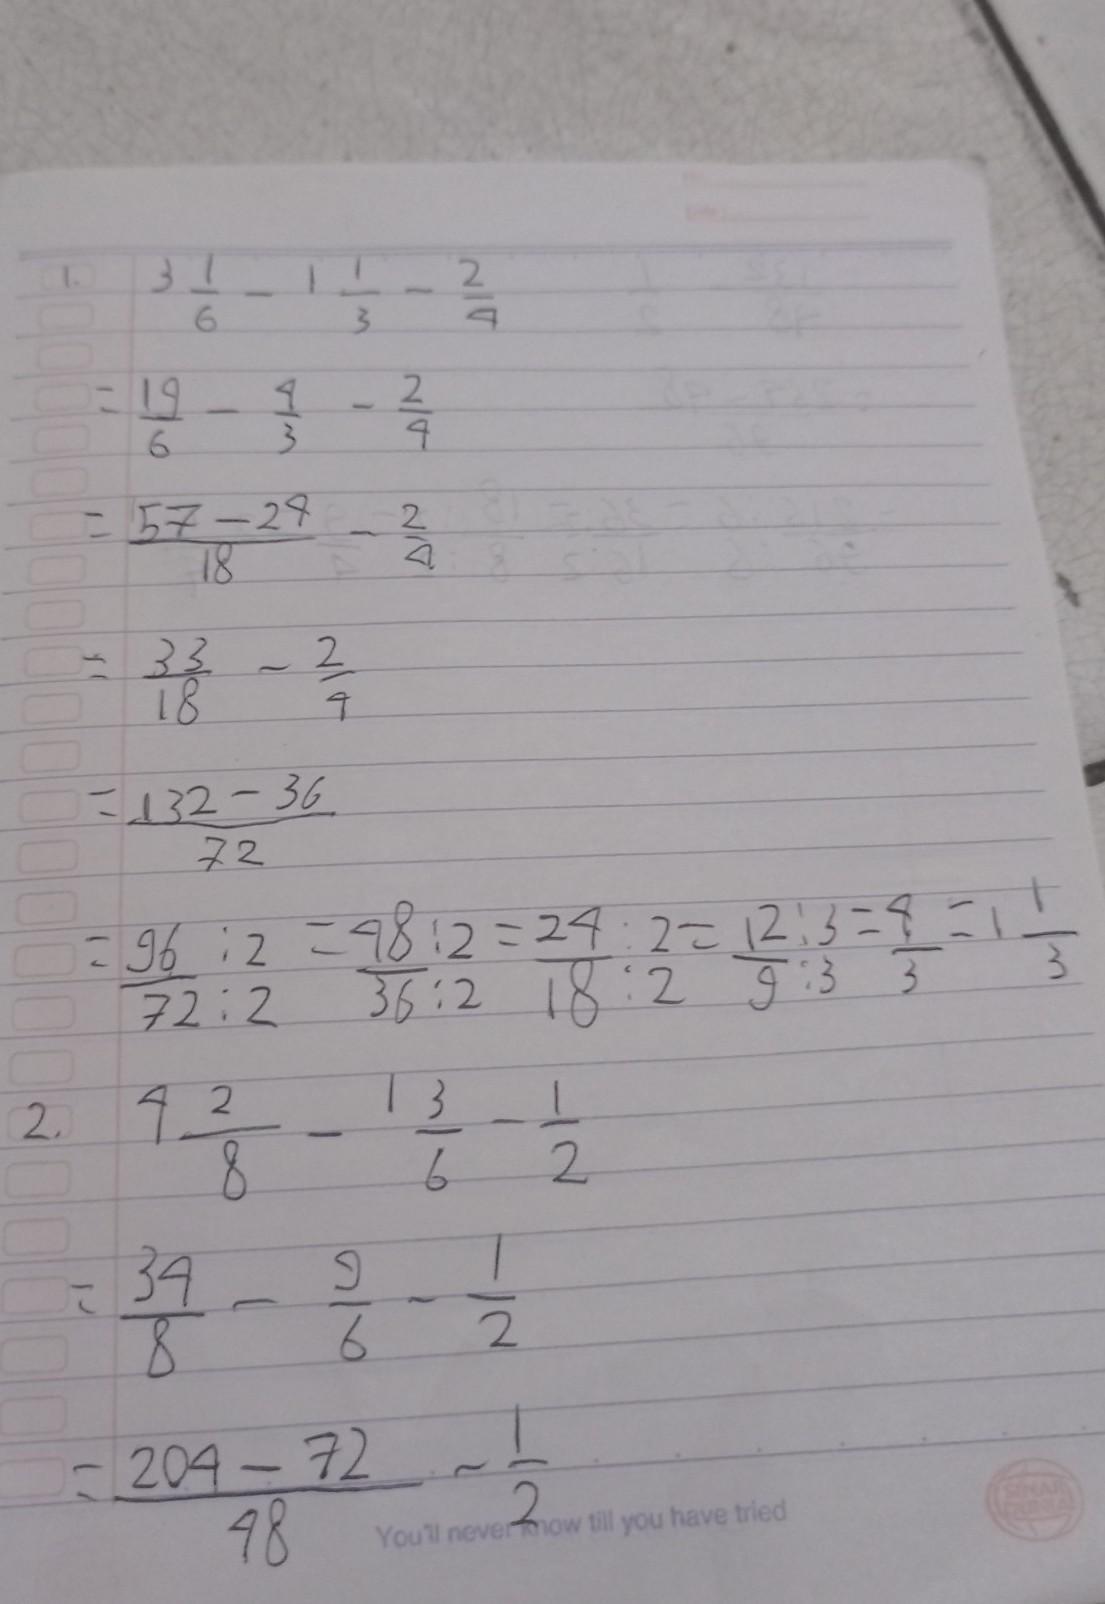 1. 3 1/6 - 1 1/3 - 2/4
= 19/6 - 4/3 - 2/4
= 57 - 24/18 - 2/4
= 33/18 - 2/4
= 132 - 36/72
= 96:2/72:2 = 48:2/36:2 = 24:2/18:2 = 12:3/9:3 = 4/3 = 1 1/3
2. 4 2/8 - 1 3/6 - 1/2
= 34/8 - 9/6 - 1/2
= 204 - 72/48 - 1/2
You'll never know till you have tried
SINAR DUNIA